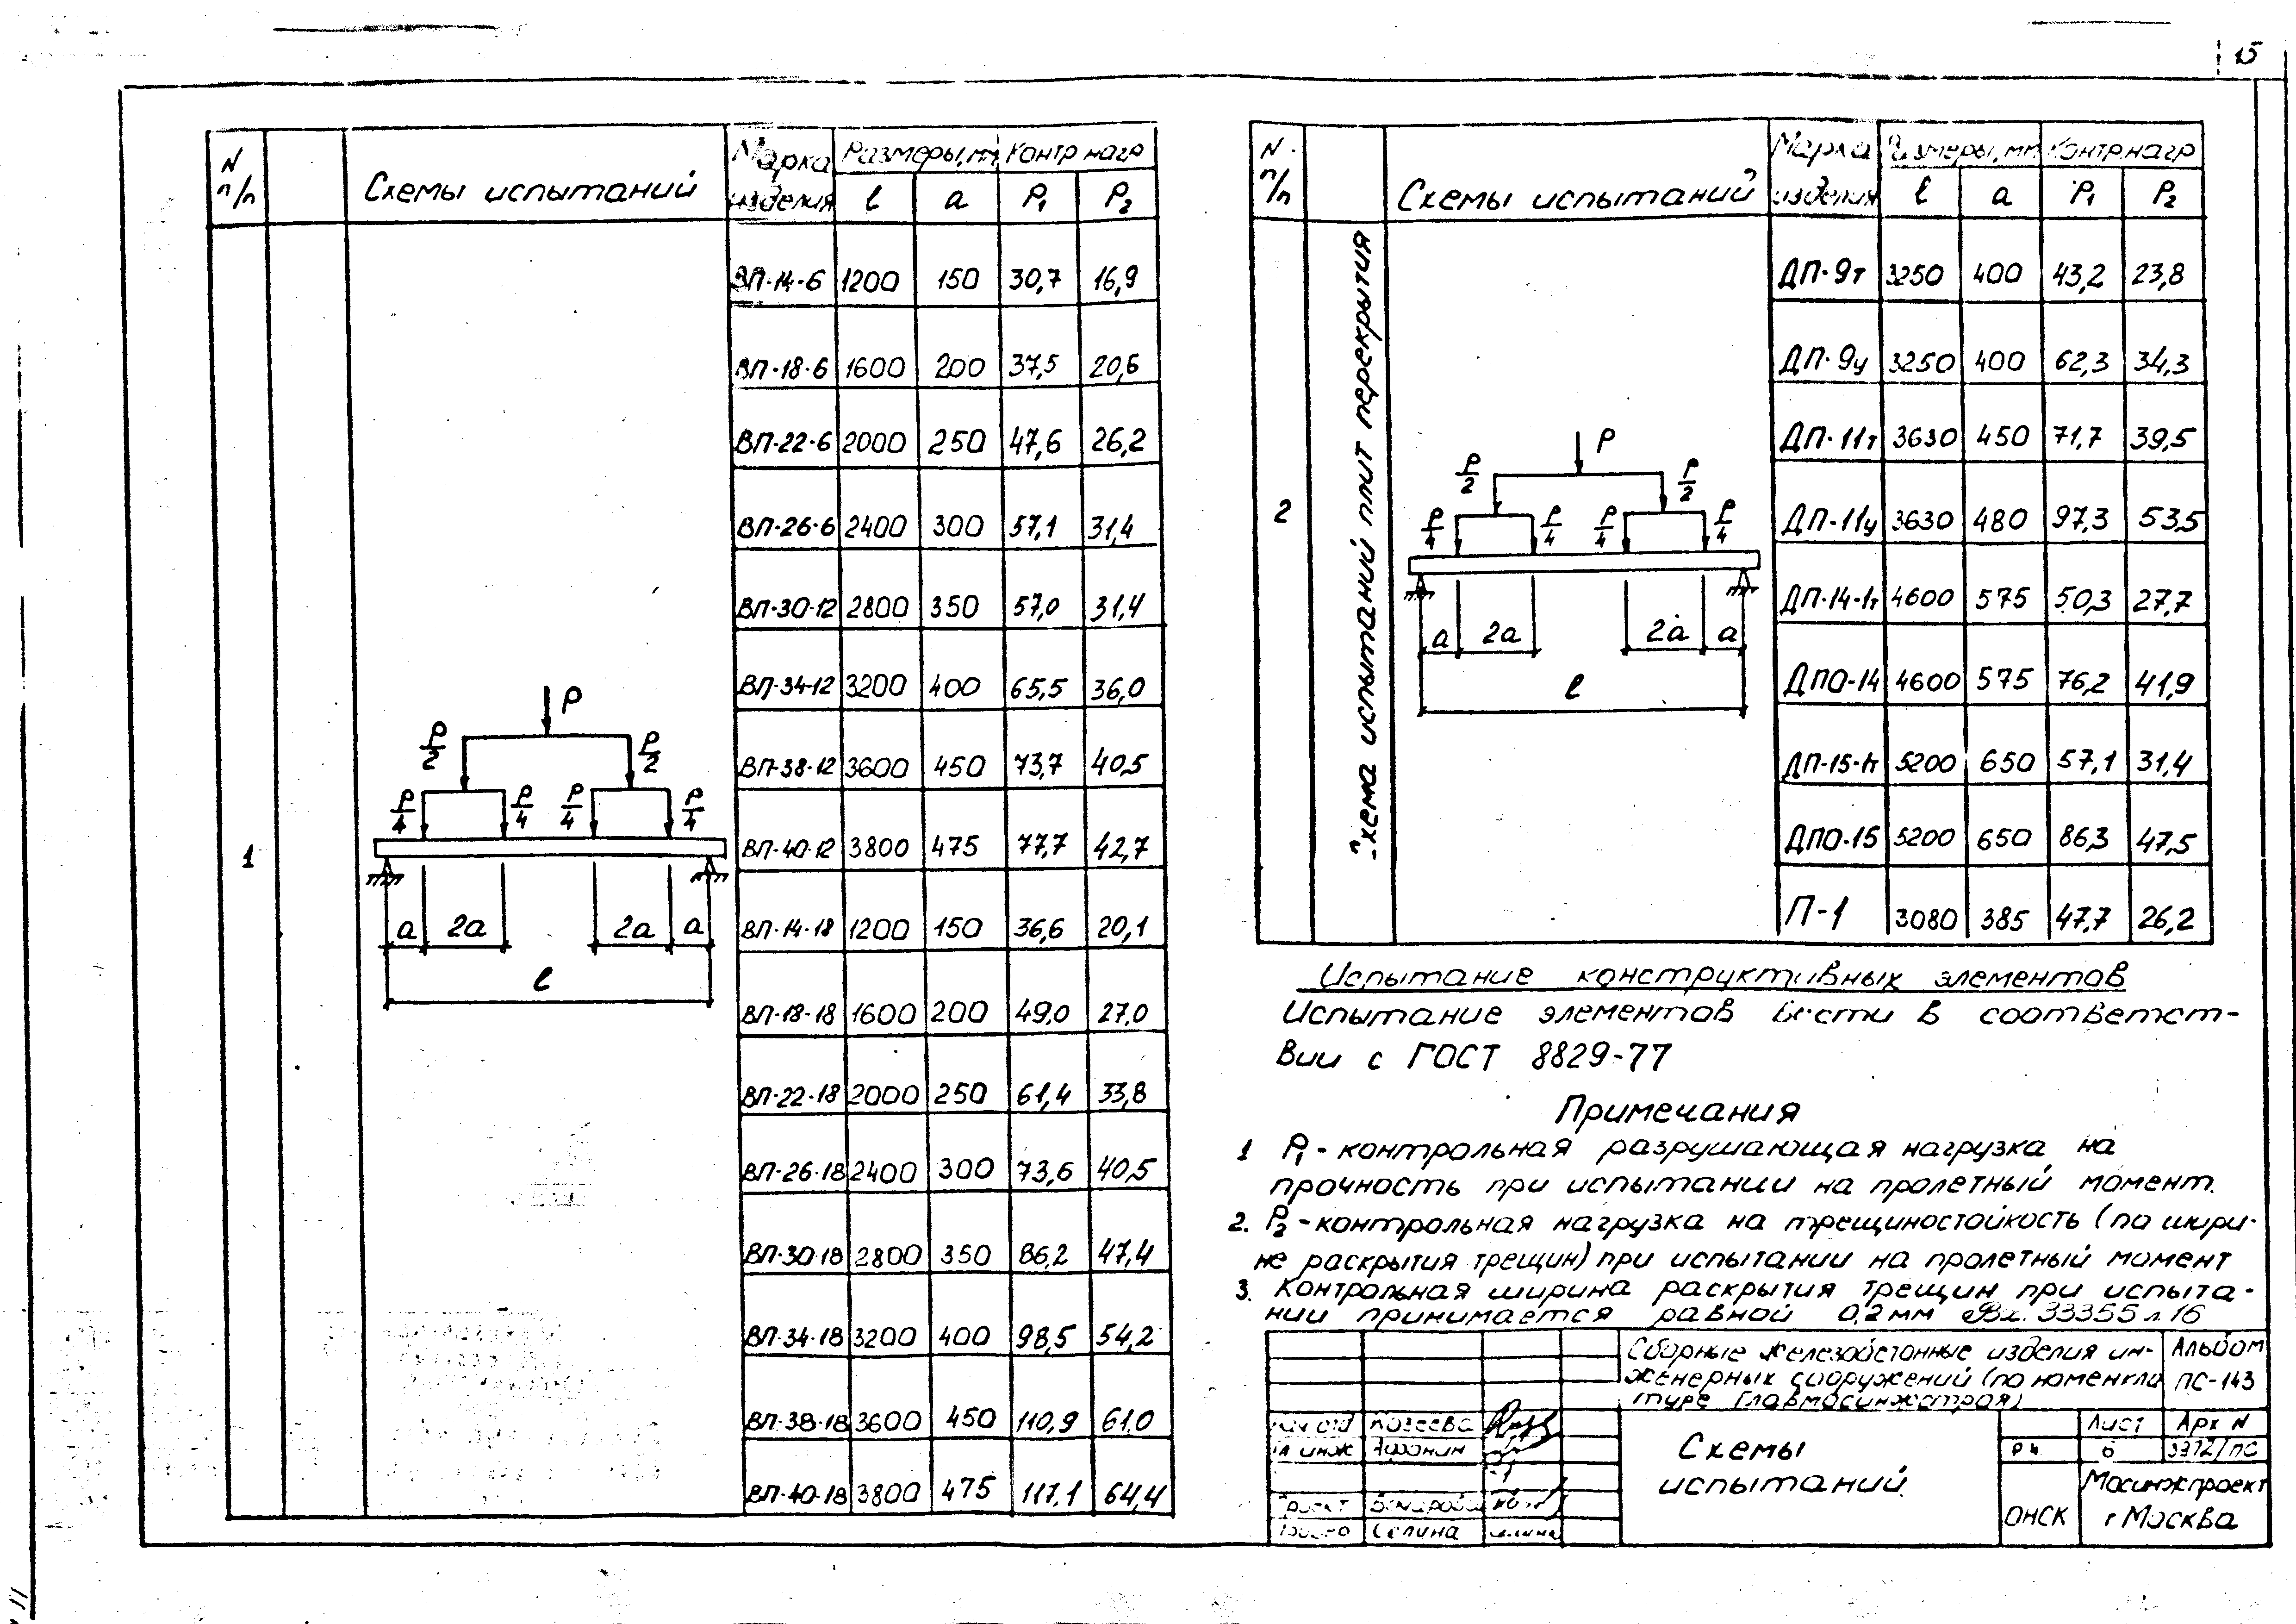 15
N п/п Схемы испытаний Марка изделия Размеры, мм Контр нагр
l a P1 P2
ВП-14-6 1200 150 30,7 16,9
ВП-18-6 1600 200 37,5 20,6
ВП-22-6 2000 250 47,6 26,2
ВП-26-6 2400 300 57,1 31,4
ВП-30-12 2800 350 57,0 31,4
ВП-34-12 3200 400 65,5 36,0
ВП-38-12 3600 450 73,7 40,5
ВП-40-12 3800 475 77,7 42,7
ВП-14-18 1200 150 36,6 20,1
ВП-18-18 1600 200 49,0 27,0
ВП-22-18 2000 250 61,4 33,8
ВП-26-18 2400 300 73,6 40,5
ВП-30-18 2800 350 86,2 47,4
ВП-34-18 3200 400 98,5 54,2
ВП-38-18 3600 450 110,9 61,0
ВП-40-18 3800 475 117,1 64,4
1
P
P/2 P/2
P/4 P/4 P/4 P/4
a 2a 2a a
l
N п/п Схемы испытаний Марка изделия Размеры, мм Контр нагр
l a P1 P2
2
Схема испытаний плит перекрытия
P
P/2 P/2
P/4 P/4 P/4 P/4
a 2a 2a a
l
ДП-9т 3250 400 43,2 23,8
ДП-9у 3250 400 62,3 34,3
ДП-11т 3630 450 71,7 39,5
ДП-11у 3630 480 97,3 53,5
ДП-14-1т 4600 575 50,3 27,7
ДПО-14 4600 575 76,2 41,9
ДП-15-1т 5200 650 57,1 31,4
ДПО-15 5200 650 86,3 47,5
П-1 3080 385 47,7 26,2
Испытание конструктивных элементов
Испытание элементов вести в соответст-
вии с ГОСТ 8829-77
Примечания
1 P1 - контрольная разрушающая нагрузка на
прочность при испытании на пролетный момент.
2. P2 - контрольная нагрузка на трещиностойкость (по шири-
не раскрытия трещин) при испытании на пролетный момент
3. Контрольная ширина раскрытия трещин при испыта-
нии принимается равной 0,2мм Вх. 33355 л. 16
Сборные железобетонные изделия ин- Альбом
женерных сооружений (по номенкла ПС-143
туре Главмосинжстроя)
Нач отд Козеева
Гл инж Афонин
Проект
Селина
Схемы
испытаний
Лист Арх N
Р.ч. 6
Мосинжпроект
ОНСК г Москва